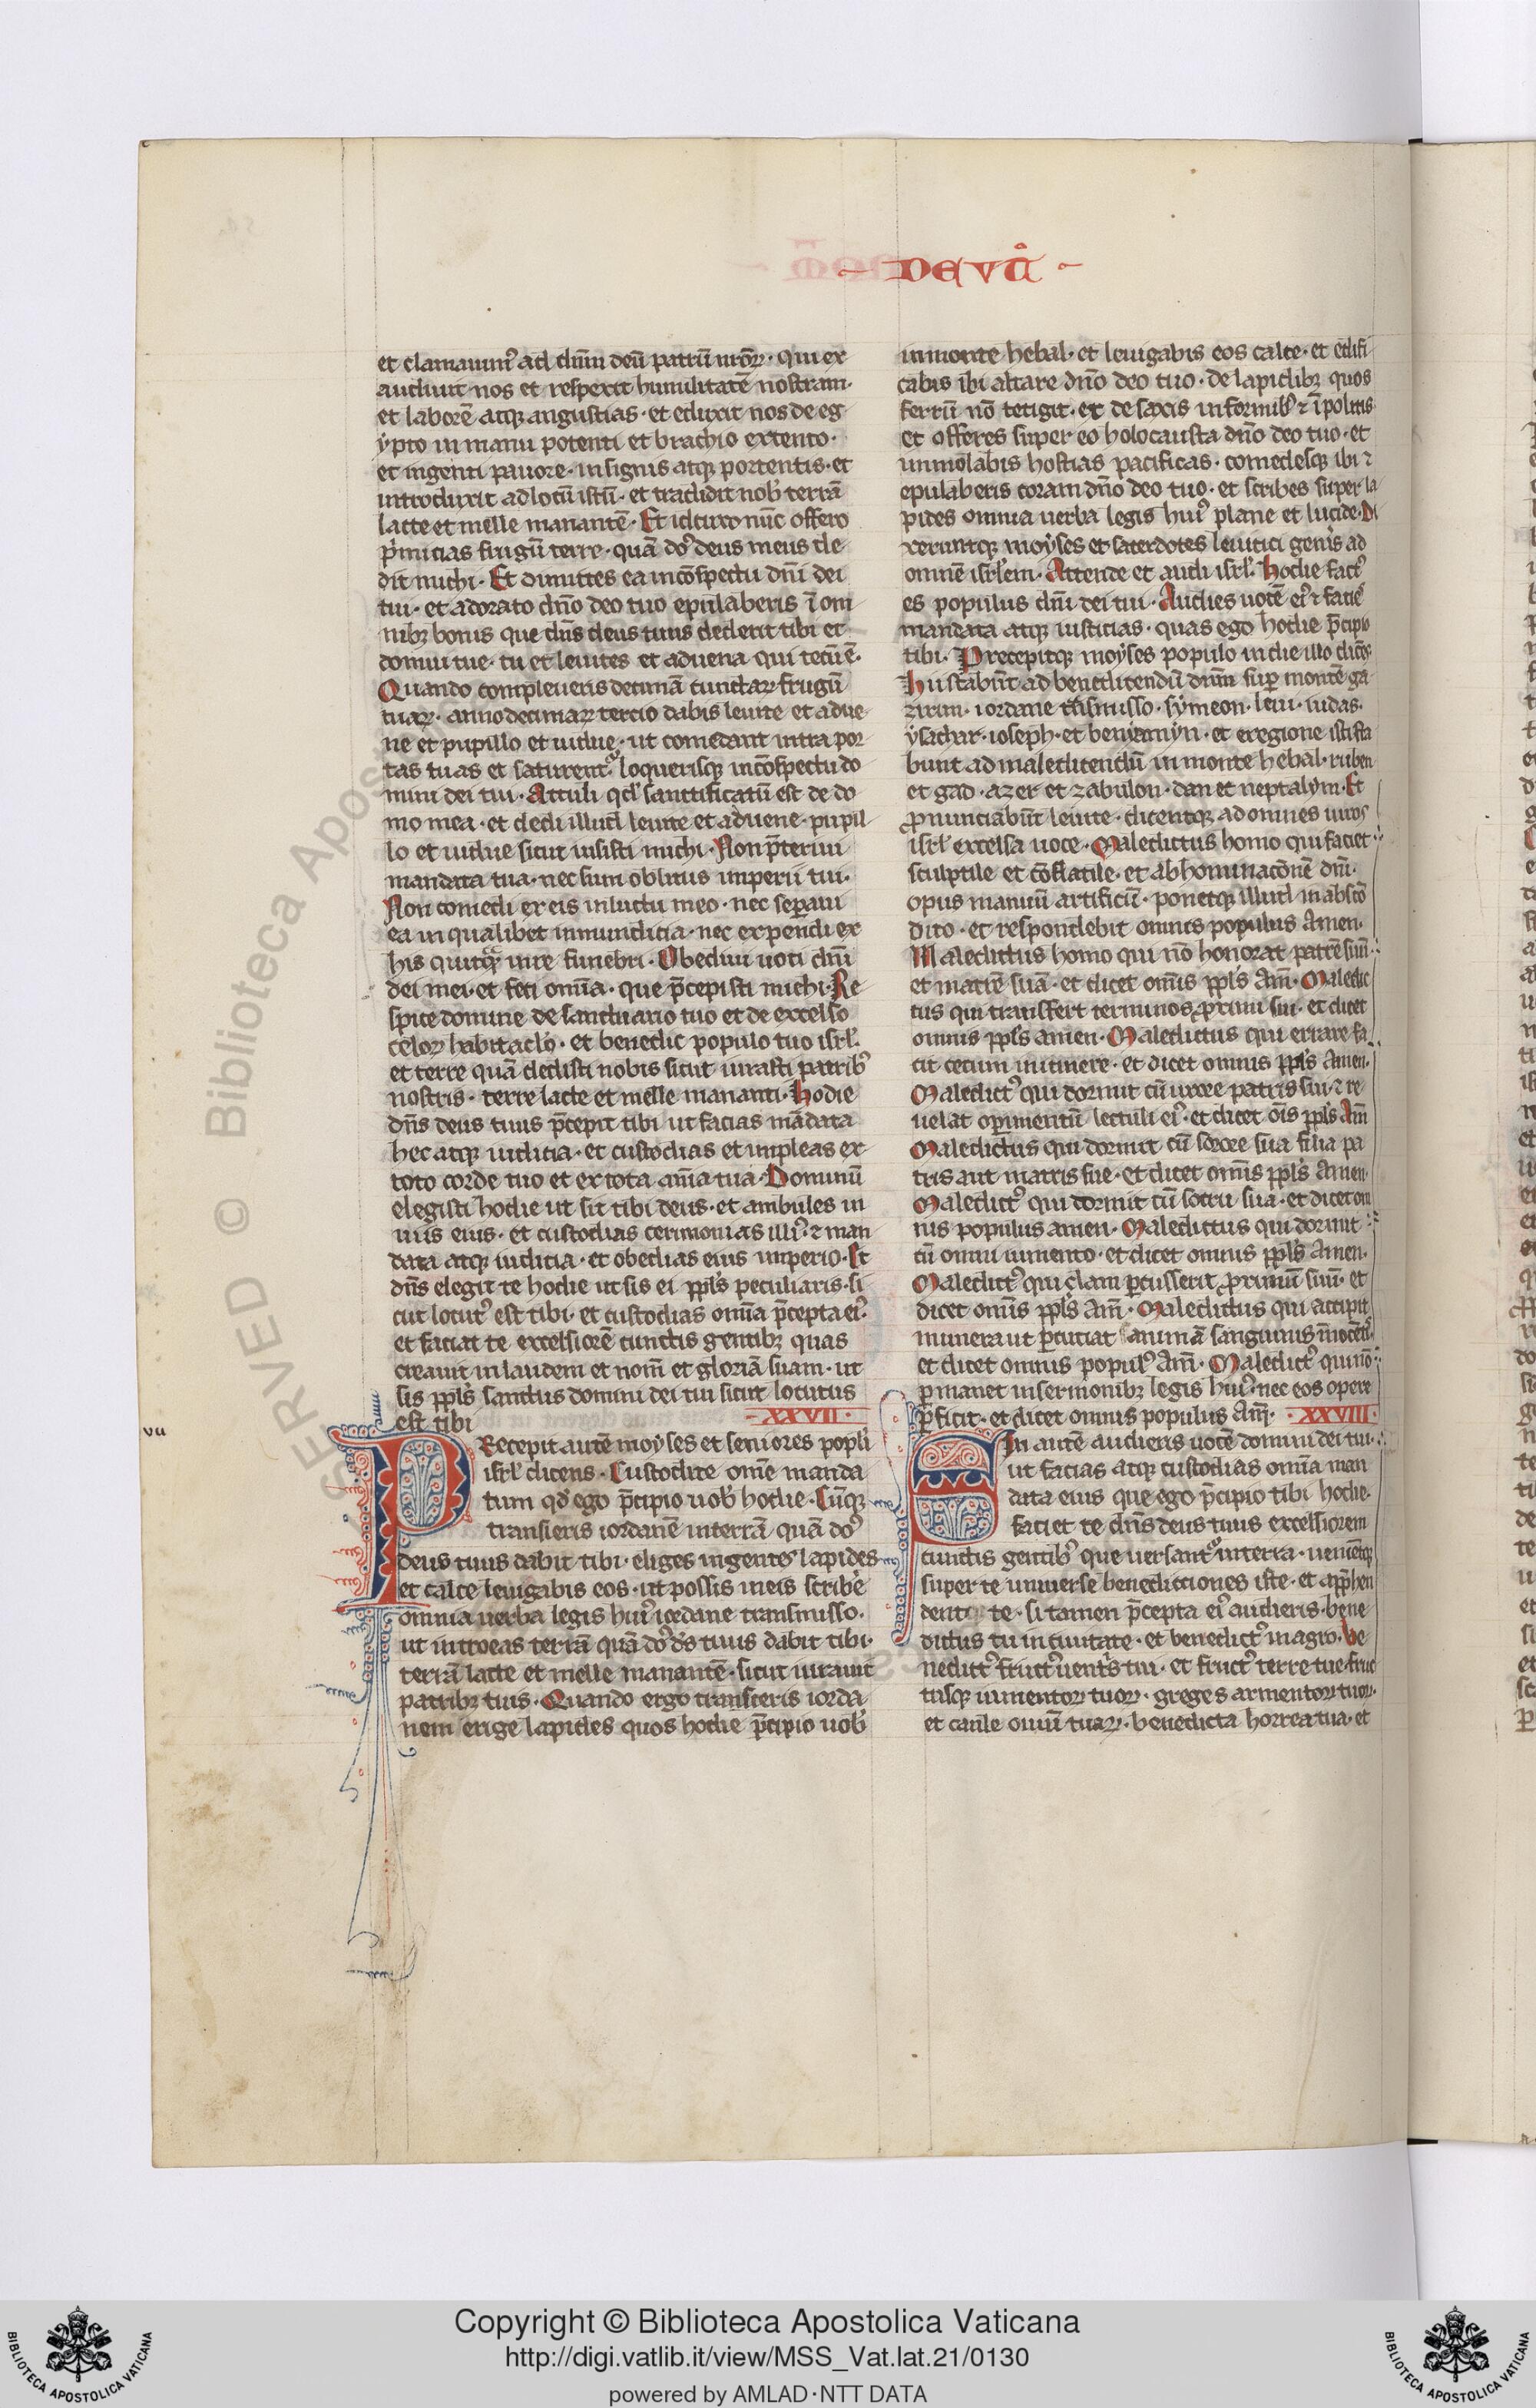 DEUT̊
et clamauimꝰ ad dn̄m deū patrū nr̄oꝝ · qui ex
audiuit nos et respexit humilitatē nostram ·
et laborē atqꝫ angustias · et eduxit nos de eg
ypto in manu potenti et brachio extento ·
et ingenti pauore · in signis atqꝫ portentis · et
introduxit ad locū istū · et tradidit nob̕ terrā
lacte et melle manantē · Et idcirco nūc offero
p̕micias frugū terre · quā do͛ deus meus de
dit michi · Et dimittes ea in cōspectu dn̄i dei
tui · et adorato dn̄o deo tuo epulaberis ī om
nibꝫ bonis que dn̄s deus tuus dederit tibi et
domui tue · tu et leuites et aduena qui tecū ē ·
Quando compleueris decimā cunctaꝝ frugū
tuaꝝ · anno decimaꝝ tercio dabis leuite et adue
ne et pupillo et uidue · ut comedant intra por
tas tuas et saturent᷑ · loquerisqꝫ in cōspectu do
mini dei tui · Attuli qd̕ sanctificatū est de do
mo mea · et dedi illud leuite et aduene · pupil
lo et uidue sicut iussisti michi · Non p̄teriui
mandata tua · nec sum oblitus imperii tui ·
Non comedi ex eis in luctu meo · nec separaui
ea in qualibet inmundicia · nec expendi ex
his quicqͣꝫ in re funebri · Obediui uoci dn̄i
dei mei · et feci om̄ia · que p̄cepisti michi · Re
spice domine de sanctuario tuo et de excelso
celoꝝ habitaclo̕ · et benedic populo tuo isrl̕ ·
et terre quā dedisti nobis sicut iurasti patribꝰ
nostris · terre lacte et melle mananti · Hodie
dn̄s deus tuus p̄cepit tibi ut facias mādata
hec atqꝫ iudicia · et custodias et impleas ex
toto corde tuo et ex tota aīa tua · Dominū
elegisti hodie ut sit tibi deus · et ambules in
uiis eius · et custodias cerimonias illiꝰ · ⁊ man
data atqꝫ iudicia · et obedias eius imperio · Et
dn̄s elegit te hodie ut sis ei ppl̕s peculiaris · si
cut locutꝰ est tibi · et custodias om̄ia p̄cepta eiꝰ ·
et faciat te excelsiorē cunctis gentibꝫ quas
creauit in laudem et nom̄ et gloriā suam · ut
sis ppl̕s sanctus domini dei tui sicut locutus
est tibi XXVII ·
vii
PRecepit autē moyses et seniores popl̕i
isrl̕ dicens · Custodite om̄e manda
tum qd̕ ego p̄cipio uob̕ hodie · Cūqꝫ
transieris iordanē in terrā quā do͛
deus tuus dabit tibi · eriges ingentes lapides
et calce leuigabis eos · ut possis in eis scribe͛
omnia uerba legis huiꝰ iordane transmisso ·
ut introeas terrā quā do͛ d̕s tuus dabit tibi ·
terrā lacte et melle manantē · sicut iurauit
patribꝫ tuis · Quando ergo transieris iorda
nem erige lapides quos hodie p̄cipio uob̕
in monte hebal · et leuigabis eos calce · et edifi
cabis ibi altare dn̄o deo tuo · de lapidibꝫ quos
ferrū nō tetigit · et de saxis informibꝰ ⁊ īpolitis
et offeres super eo holocausta dn̄o deo tuo · et
immolabis hostias pacificas · comedesqꝫ ibi ⁊
epulaberis coram dn̄o deo tuo · et scribes super la
pides omnia uerba legis huiꝰ plane et lucide · Di
xeruntqꝫ moyses et sacerdotes leuitici gen̕is ad
omnē isrl̕em · Attende et audi isrl̕ · Hodie factꝰ
es populus dn̄i dei tui · Audies uocē eiꝰ ⁊ facies
mandata atqꝫ iusticias · quas ego hodie p̄cipio
tibi · Precepitqꝫ moyses populo in die illo dicēs ·
Hii stabūt ad benedicendū dn̄m sup̱ montē ga
rizim · iordane tͣsmisso · symeon · leui · iudas ·
ysachar · ioseph · et benyamyn · et e regione isti sta
bunt ad maledicendū in monte hebal · ruben
et gad · azer et zabulon · dan et neptalym · Et
ꝓnunciabūt leuite · dicentqꝫ ad omnes uiros
isrl̕ excelsa uoce · Maledictus homo qui faciet
sculptile et cōflatile · et abhominacōnē dn̄i ·
opus manuū artificū · ponetqꝫ illud in abscō
dito · et respondebit omnis populus amen ·
Maledictus homo qui nō honorat patrē suū ·
et matrē suā · et dicet om̄is ppl̕s am̄ · Maledic
tus qui transfert terminos ꝓximi sui · et dicet
omnis ppl̕s amen · Maledictus qui errare fa
cit cecum in itinere · et dicet omnis ppl̕s amen ·
Maledictꝰ qui dormit cū uxore patris sui · ⁊ re
uelat oꝑimentū lectuli eiꝰ · et dicet oīs ppl̕s am̄
Maledictus qui dormit cū sorore sua filia pa
tris aut matris sue · et dicet om̄is ppl̕s amen ·
Maledictꝰ qui dormit cū socru sua · et dicet om
nis populus amen · Maledictus qui dormit
cū omni iumento · et dicet omnis ppl̕s amen ·
Maledictꝰ qui clam ꝑcusserit ꝓximū suū · et
dicet om̄is ppl̕s am̄ · Maledictus qui accipit
munera ut ꝑcutiat animā sanguinis īnocētis ·
et dicet omnis populꝰ am̄ · Maledictꝰ qui nō
ꝑmanet in sermonibꝫ legis huiꝰ · nec eos opere
ꝑficit · et dicet omnis populus am̄ · XXVIII ·
SIn autē audieris uocē domini dei tui ·
ut facias atqꝫ custodias om̄ia man
data eius que ego p̄cipio tibi hodie ·
faciet te dn̄s deus tuus excelsiorem
cunctis gentibꝰ que uersant᷑ in terra · uenientqꝫ
super te uniuerse benedictiones iste · et app̄hen
dent te · si tamen p̄cepta eiꝰ audieris · bene
dictus tu in ciuitate · et benedictꝰ in agro · Be
nedictꝰ fructꝰ uent̕s tui · et fructꝰ terre tue · fruc
tusqꝫ iumentoꝝ tuoꝝ · greges armentoꝝ tuoꝝ ·
et caule ouiū tuaꝝ · benedicta horrea tua · et
RVED © Biblioteca Apos
Copyright © Biblioteca Apostolica Vaticana
http://digi.vatlib.it/view/MSS_Vat.lat.21/0130
powered by AMLAD·NTT DATA
BIBLIOTECA APOSTOLICA VATICANA
BIBLIOTECA APOSTOLICA VATICANA